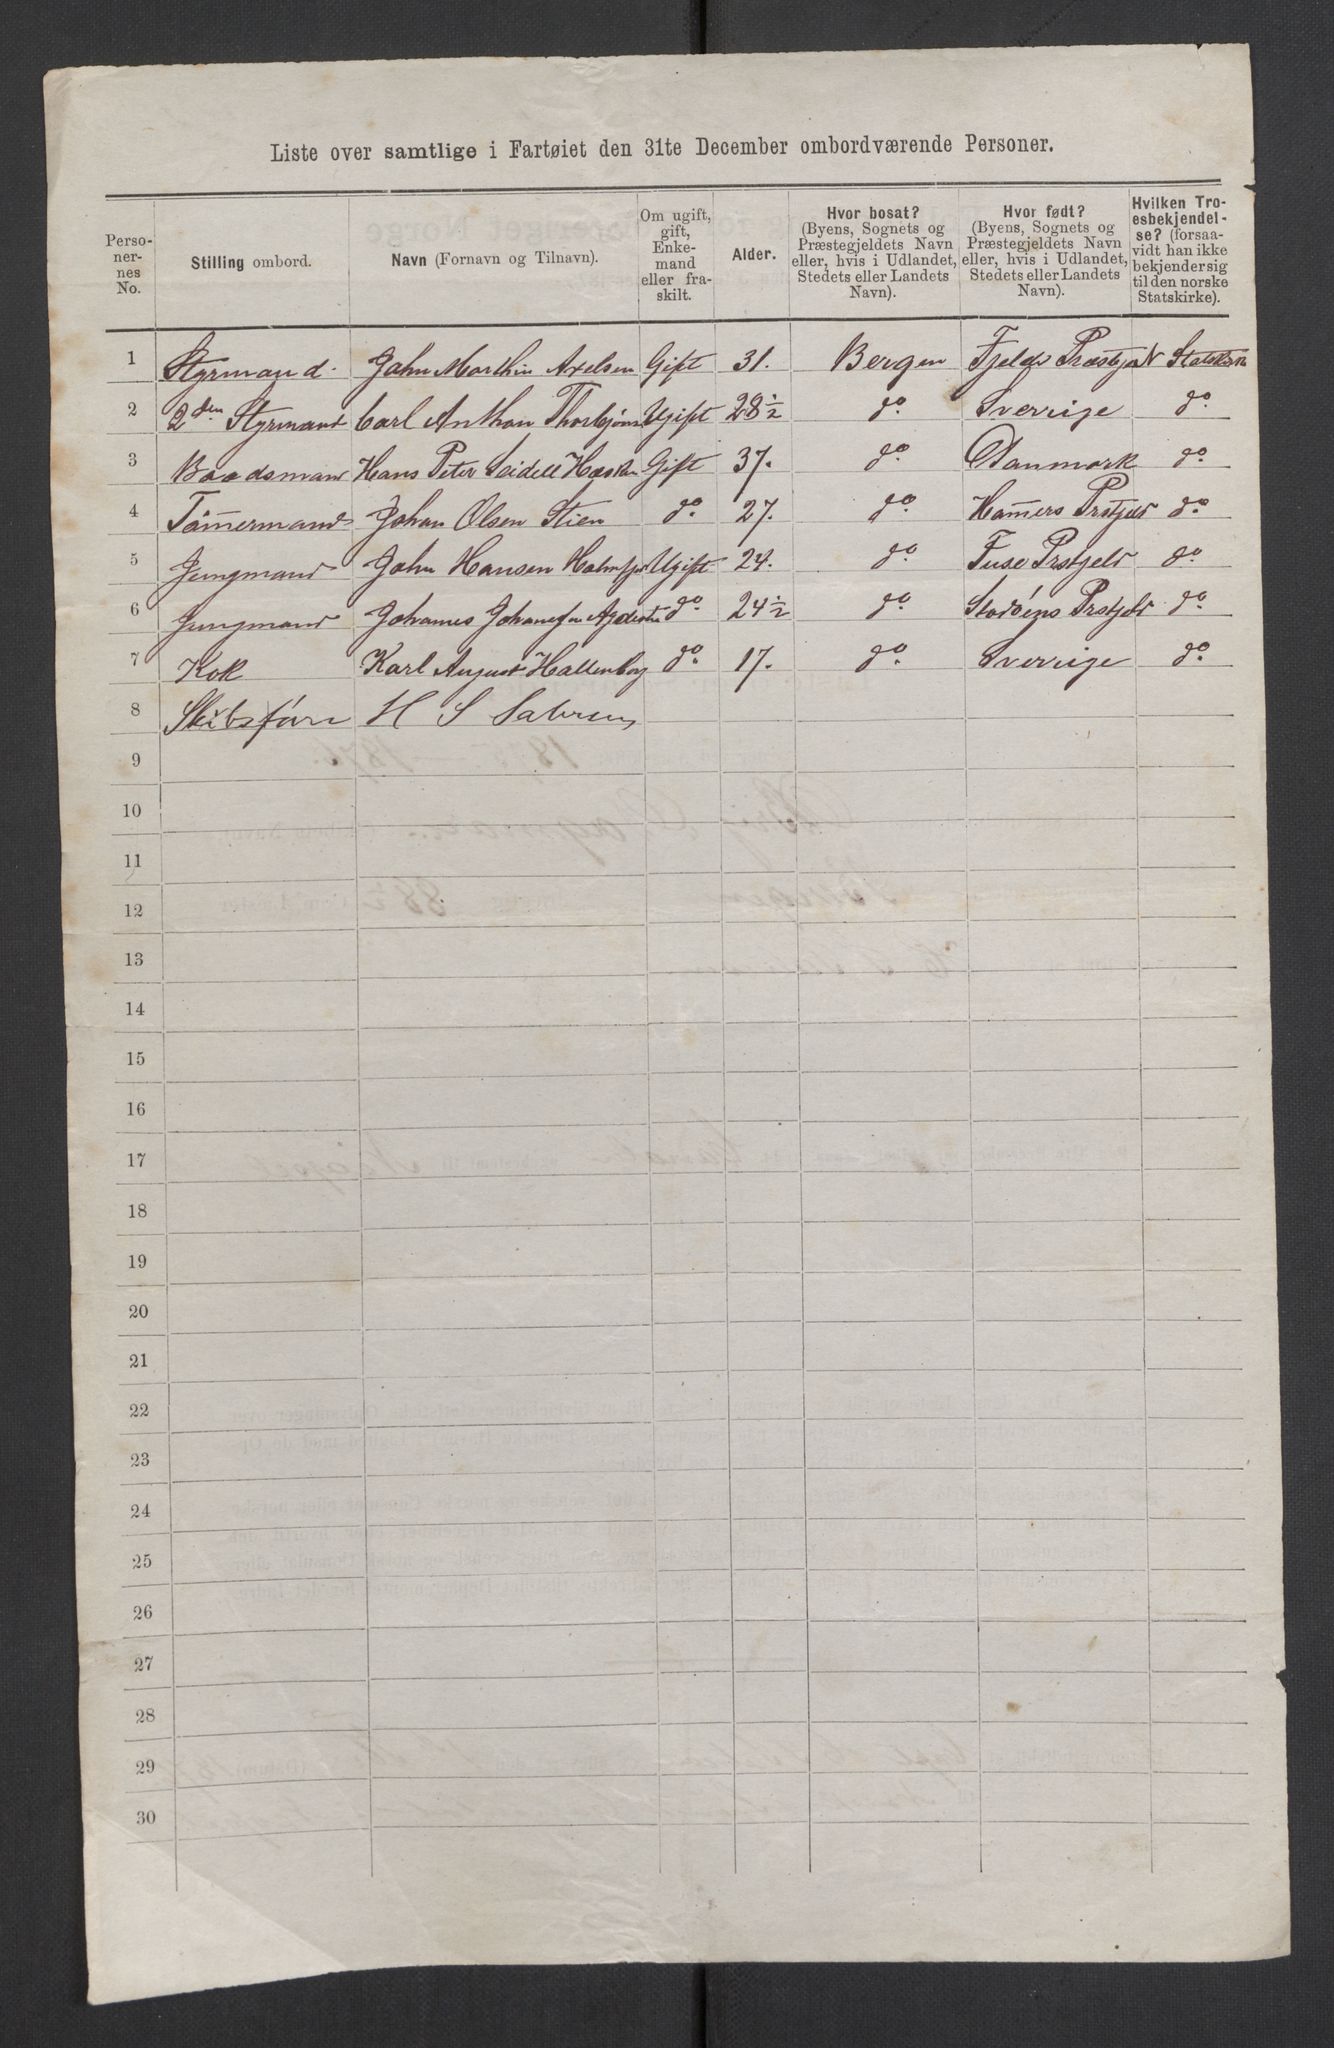 Liste over samtlige i Fartøiet den 31te December ombordværende Personer.
Perso-
ner-
nes
No.
Stilling ombord.
Navn (Fornavn og Tilnavn).
Om ugift,
gift,
Enke-
mand
eller fra-
skilt.
Alder.
Hvor bosat?
(Byens, Sognets og
Præstegjeldets Navn
eller, hvis i Udlandet,
Stedets eller Landets
Navn).
Hvor født?
(Byens, Sognets og
Præstegjeldets Navn
eller, hvis i Udlandet,
Stedets eller Landets
Navn).
Hvilken Tro-
esbekjendel-
se? (forsaa-
vidt han ikke
bekjender sig
til den norske
Statskirke).
1 Styrmand. John Marthin Axelsen Gift 31. Bergen Fjelds Præstgjæl N Statskirk
2 2den Styrmand Carl Anthon Thorbjøns Ugift 28 1/2 do Sverrige do
3 Baadsmand Hans Peter Seidell Gift 37. do Danmark do
4 Tømmermand Johan Olsen Stien do 27. do Hamers Prstjeld do
5 Jungmand John Hansen Ugift 24. do Fuse Prstjeld do
6 Jungmand Johannes do 24 1/2 do Prstjeld do
7 Kok Karl August Hallenborg do 17. do Sverrige do
8 Skibsfører H S
9
10
11
12
13
14
15
16
17
18
19
20
21
22
23
24
25
26
27
28
29
30